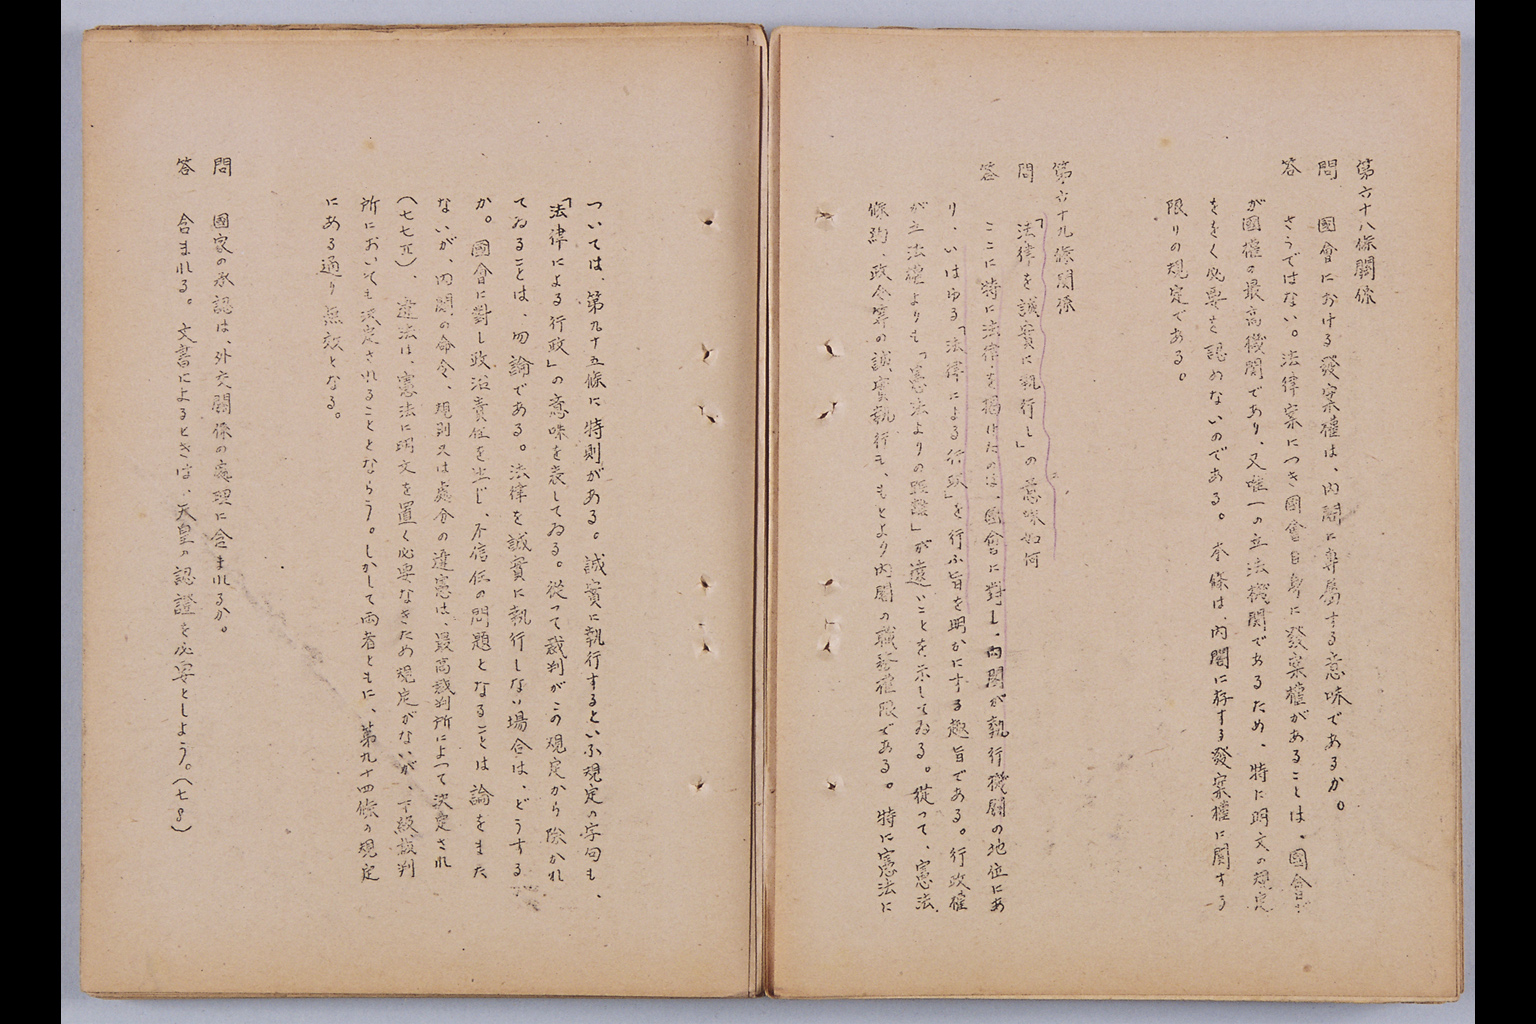 第六十八條關係
問　國會における發案權は、內閣に專屬する意味であるか。
答　さうではない。法律案につき國會自身に發案權があることは、國會が
が國權の最高機関であり、又唯一の立法機関であるため、特に明文の規定
をおく必要を認めないのである。本條は、內閣に存する發案權に関する
限りの規定である。
第六十九條関係
問　「法律を誠實に執行し」の意味如何
答　ここに特に法律を掲げたのは、國會に對し、內閣が執行機関の地位にあ
り、いはゆる「法律による行政」を行ふ旨を明かにする趣旨である。行政權
が立法權よりも「憲法よりの距離」が遠いことを示してゐる。從つて、憲法、
條約、政令等の誠實執行も、もとより內閣の職務權限である。特に憲法に
ついては、第九十五條に特則がある。誠實に執行するといふ規定の字句も、
「法律による行政」の意味を表してゐる。從つて裁判がこの規定から除かれ
てゐることは、勿論である。法律を誠實に執行しない場合は、どうする
か。國會に對し政治責任を生じ、不信任の問題となることは論をまた
ないが、內閣の命令、規則又は處分の違憲は、最高裁判所によつて決定され
（七七Ⅱ）、違法は、憲法に明文を置く必要なきため規定がないが、下級裁判
所においても決定されることとならう。しかして両者ともに、第九十四條の規定
にある通り無效となる。
問　國家の承認は、外交關係の處理に含まれるか。
答　含まれる。文書によるときは、天皇の認證を必要としよう。（七8）